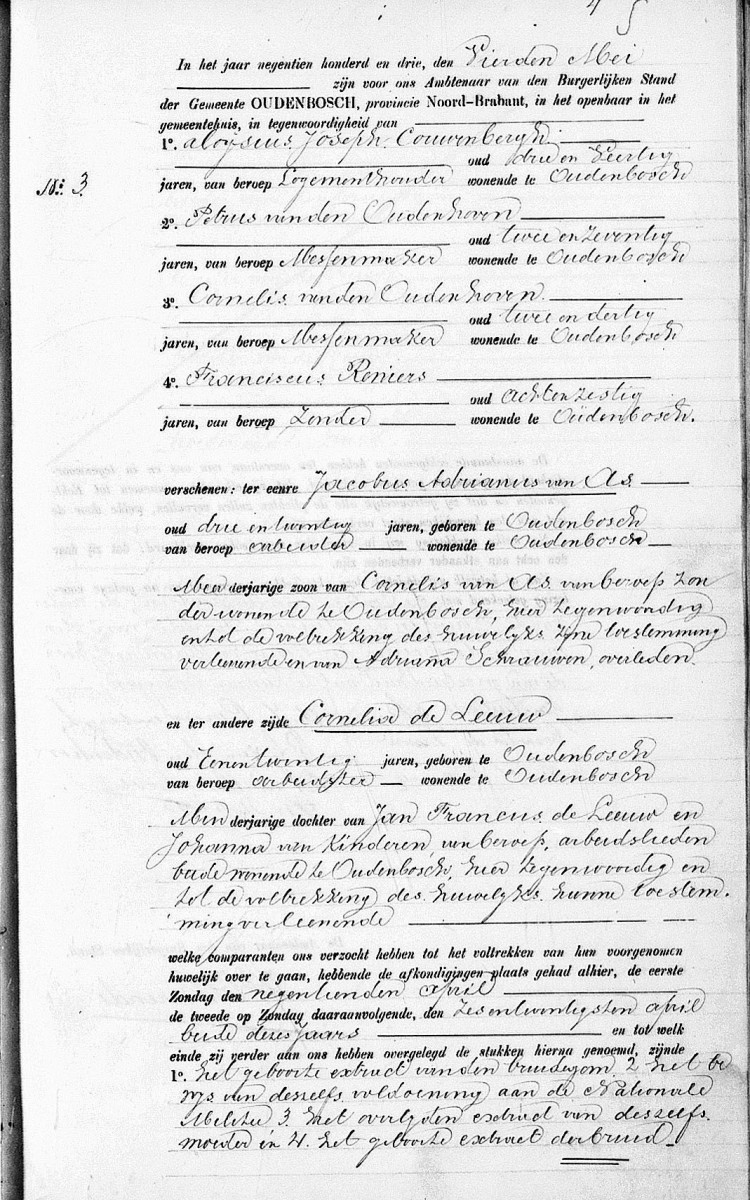 In het jaar negentien honderd en drie, den Vierden Mei
zijn voor ons Ambtenaar van den Burgerlijken Stand
der Gemeente OUDENBOSCH, provincie Noord-Brabant, in het openbaar in het
gemeentehuis, in tegenwoordigheid van
1°. Aloysius Joseph Couwenbergh
oud drie en Veertig
No: 3.
jaren, van beroep Logementhouder wonende te Oudenbosch
2°. Petrus van den Oudenhoven
oud twee en Zeventig
jaren, van beroep Messenmaker wonende te Oudenbosch
3°. Cornelis van den Oudenhoven
oud twee en dertig
jaren, van beroep Messenmaker wonende te Oudenbosch
4°. Franciscus Reniers
oud achtenzestig
jaren, van beroep Zonder wonende te Oudenbosch.
verschenen: ter eenre Jacobus Adrianus van As
oud drie entwintig jaren, geboren te Oudenbosch
van beroep arbeider wonende te Oudenbosch
Minderjarige zoon van Cornelis van As van beroep Zon
der wonende te Oudenbosch, hier tegenwoordig
entot de voltrekking des huwelyks zyne toestemming
verleenende en van Adriana Schrauwen, overleden.
en ter andere zijde Cornelia de Leeuw
oud Eenentwintig jaren, geboren te Oudenbosch
van beroep arbeidster wonende te Oudenbosch
Minderjarige dochter van Jan Francus de Leeuw en
Johanna van Kinderen, van beroep, arbeidslieden
beide wonende te Oudenbosch, hier tegenwoordig en
tot de voltrekking des huwelyks hunne toestem-
ming verleenende
welke comparanten ons verzocht hebben tot het voltrekken van hun voorgenomen
huwelijk over te gaan, hebbende de afkondigingen plaats gehad alhier, de eerste
Zondag den negentienden april
de tweede op Zondag daaraanvolgende, den Zesentwintigsten april
beide dezes Jaars en tot welk
einde zij verder aan ons hebben overgelegd de stukken hierna genoemd, zijnde
1°. Het geboorte extract van den bruidegom, 2 het be
wys van deszelfs voldoening aan de Nationale
Militie 3. het overlyden extract van deszelfs
moeder en 4. het geboorte extract der bruid.